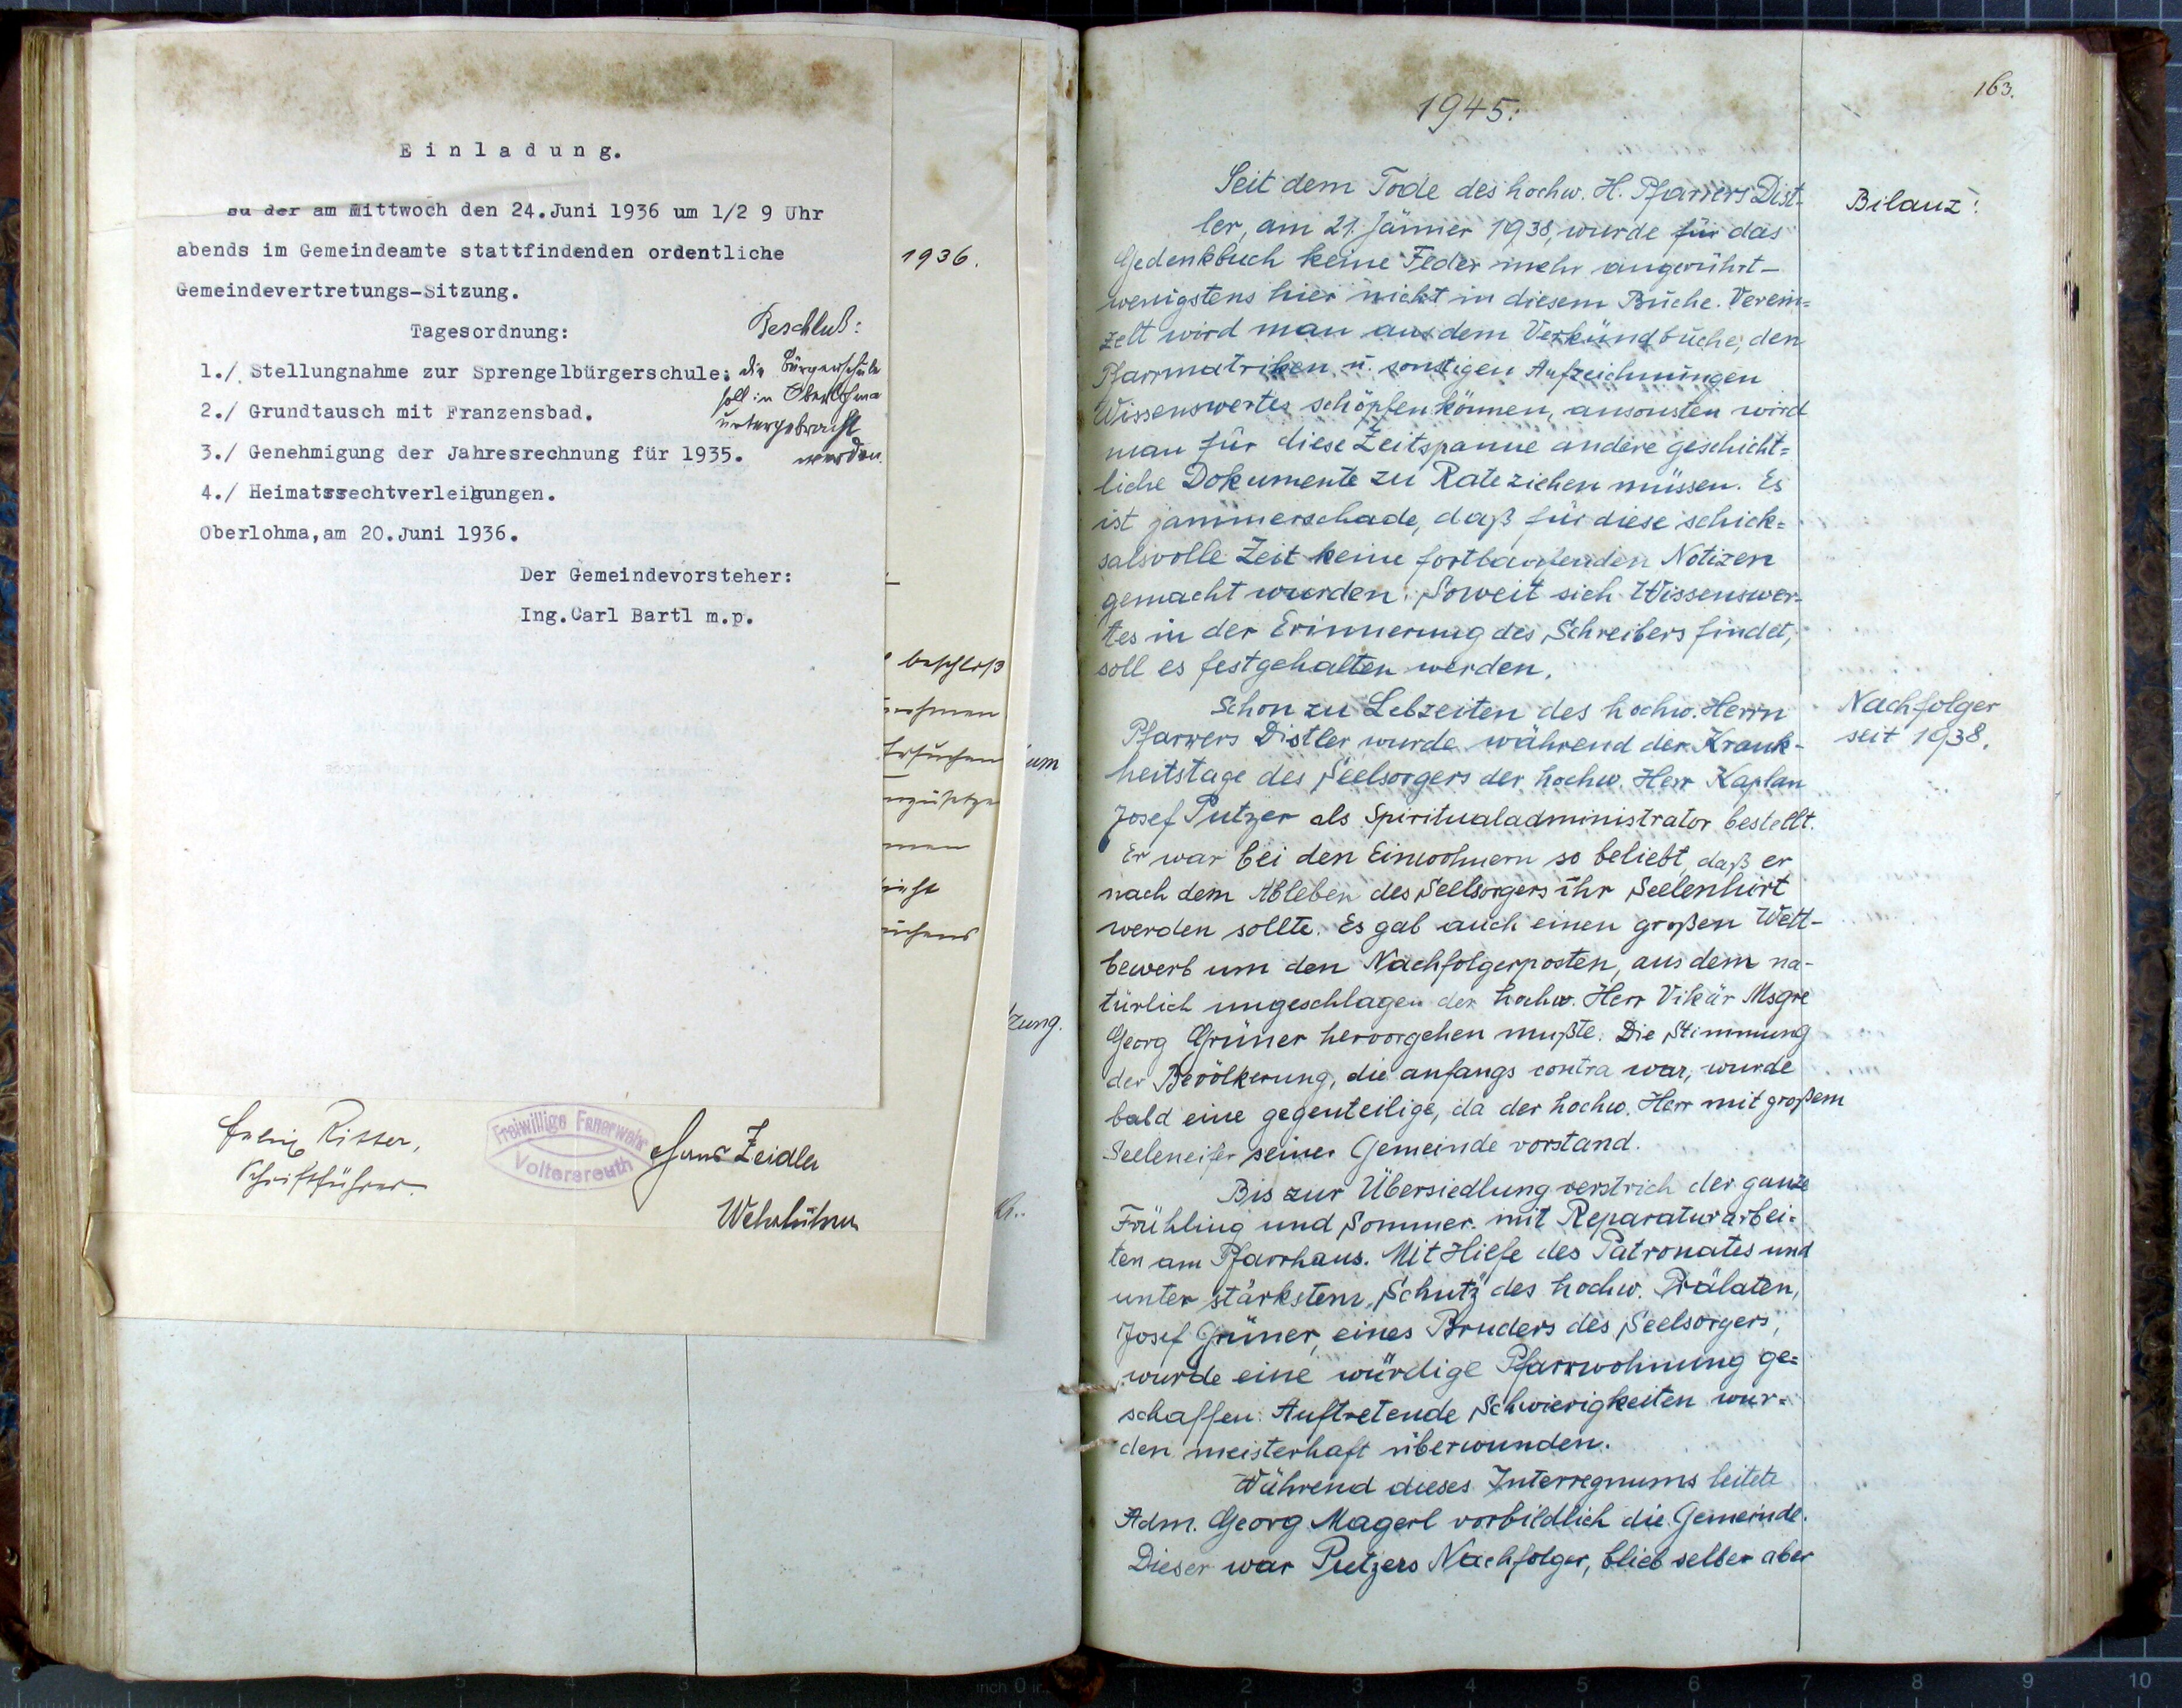 Einladung.
zu der am Mittwoch den 24.Juni 1936 um 1/2 9 Uhr
abends im Gemeindeamte stattfindenden ordentliche
Gemeindevertretungs-Sitzung.
Tagesordnung:
Beschluß:
1./ Stellungnahme zur Sprengelbürgerschule: die Bürgerschule
soll in Oberlohma
2./ Grundtausch mit Franzensbad.
untergebracht
3./ Genehmigung der Jahresrechnung für 1935.
werden.
4./ Heimatsrechtverleihungen.
Oberlohma,am 20.Juni 1936.
Der Gemeindevorsteher:
Ing.Carl Bartl m.p.
1936.
beschloß
ersuchen
um
zung.
Ritter,
Schriftführer.
Freiwillige Feuerwehr
Voitersreuth
Hans Zeidler
163.
1945:
Seit dem Tode des hochw. H. Pfarrers Dist-
ler, am 21. Jänner 1938, wurde für das
Gedenkbuch keine Feder mehr angerührt -
wenigstens hier nicht in diesem Buche. Verein=
zelt wird man aus dem Verkündbuche, den
Pfarrmatriken u. sonstigen Aufzeichnungen
Wissenswertes schöpfen können, ansonsten wird
man für diese Zeitspanne andere geschicht=
liche Dokumente zu Rate ziehen müssen. Es
ist jammerschade, daß für diese schick=
salsvolle Zeit keine fortlaufenden Notizen
gemacht wurden. Soweit sich Wissenswer-
tes in der Erinnerung des Schreibers findet,
soll es festgehalten werden.
Schon zu Lebzeiten des hochw. Herrn
Pfarrers Distler wurde während der Krank-
heitstage des Seelsorgers der hochw. Herr Kaplan
Josef Putzer als Spiritualadministrator bestellt.
Er war bei den Einwohnern so beliebt, daß er
nach dem Ableben des Seelsorgers ihr Seelenhirt
werden sollte. Es gab auch einen großen Wett-
bewerb um den Nachfolgerposten, aus dem na-
türlich ungeschlagen der hochw. Herr Vikär Msgre
Georg Grüner hervorgehen mußte. Die Stimmung
der Bevölkerung, die anfangs contra war, wurde
bald eine gegenteilige, da der hochw. Herr mit großem
Seeleneifer seiner Gemeinde vorstand.
Bis zur Übersiedlung verstrich der ganze
Frühling und Sommer mit Reparaturarbei=
ten am Pfarrhaus. Mit Hilfe des Patronates und
unter stärkstem „Schutz" des hochw. Prälaten,
Josef Grüner, eines Bruders des Seelsorgers,
wurde eine würdige Pfarrwohnung ge=
schaffen. Auftretende Schwierigkeiten wur=
den meisterhaft überwunden.
Während dieses Interregnums leitete
Adm. Georg Magerl vorbildlich die Gemeinde.
Dieser war Putzers Nachfolger, blieb selber aber
Bilanz!
Nachfolger
seit 1938.